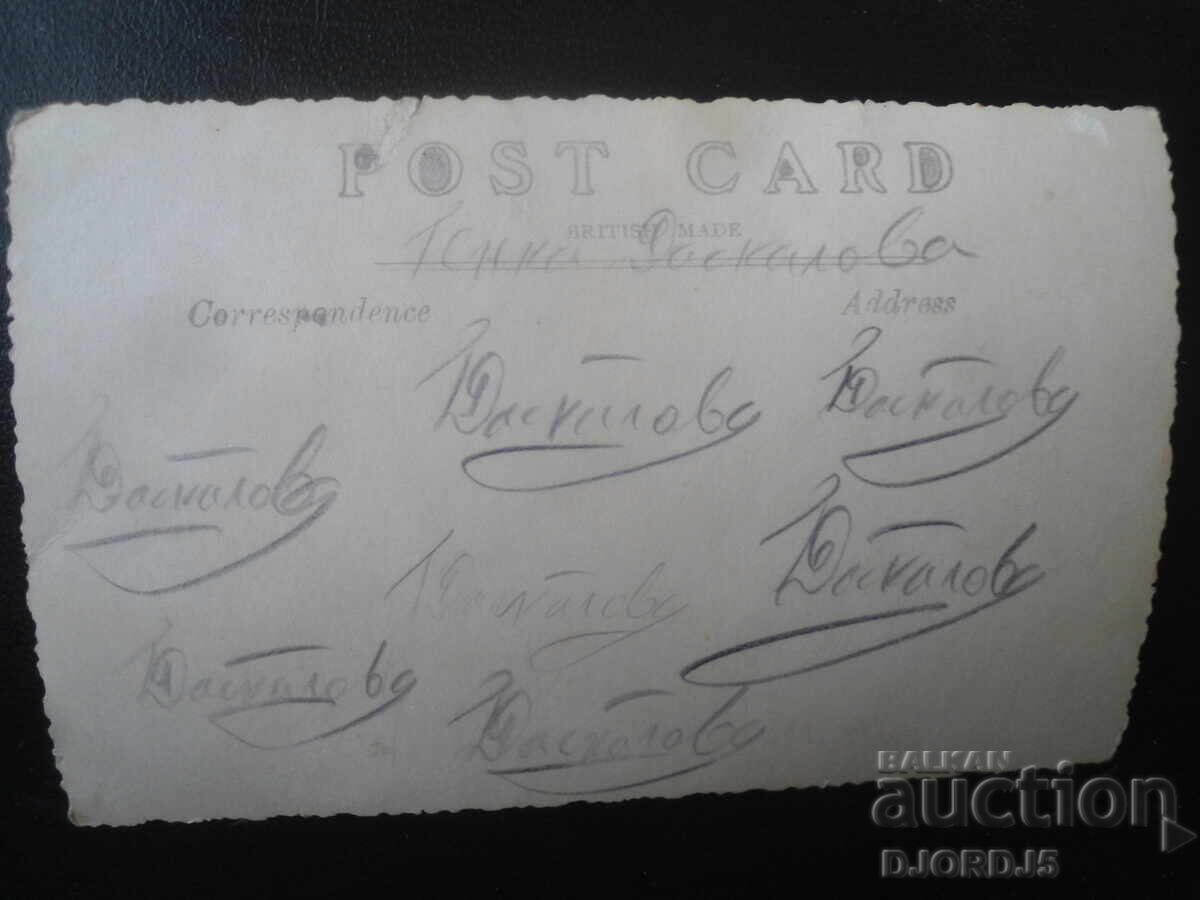 POST CARD
BRITISH MADE
Генка Даскалова
Correspondence
Address
Даскалова
Даскалова
Даскалова
Даскалова
Даскалова
Даскалова
Даскалова
BALKAN
auction
DJORDJ5